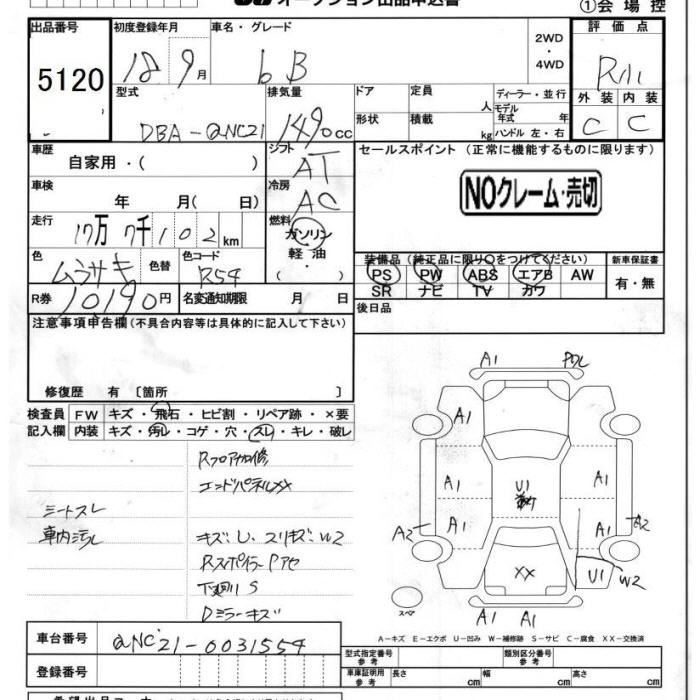 ①会場控
出品番号
5120
初度登録年月
18 9月
車名・グレード
bB
2WD・4WD
評価点
R/11
型式
DBA-QNC21
排気量
1490cc
ドア
定員
人
ディーラー・並行
モデル年式 年
形状
積載
kg
ハンドル 左・右
外装 内装
C C
車歴
自家用・( )
シフト
AT
セールスポイント (正常に機能するものに限ります)
NOクレーム・売切
車検
年 月( 日)
冷房
AC
走行
17万 7千102km
燃料
ガソリン・軽油・( )
色
ムラサキ
色替
色コード
R54
装備品(純正品に限り○をつけてください)
PS PW ABS エアB AW
SR ナビ TV カワ
新車保証書
有・無
R券
10190円
名変通知期限 月 日
後日品
注意事項申告欄(不具合内容等は具体的に記入して下さい)
修復歴 有〔箇所 〕
検査員記入欄
FW キズ・飛石・ヒビ割・リペア跡・×要
内装 キズ・汚レ・コゲ・穴・スレ・キレ・破レ
エンドパネルXX
シートスレ
車内汚レ
キズ. U. スリキズ. W2
下廻りS
Dミラーキズ
A1
A1
A1
A1
A1
A1
U1
A2
A2
XX
U1
W2
A1 A1
スペア
A-キズ E-エクボ U-凹み W-補修跡 S-サビ C-腐食 XX-交換済
車台番号
QNC21-0031554
登録番号
型式指定番号 参考
類別区分番号 参考
車庫証明用 参考
長さ cm 幅 cm 高さ cm